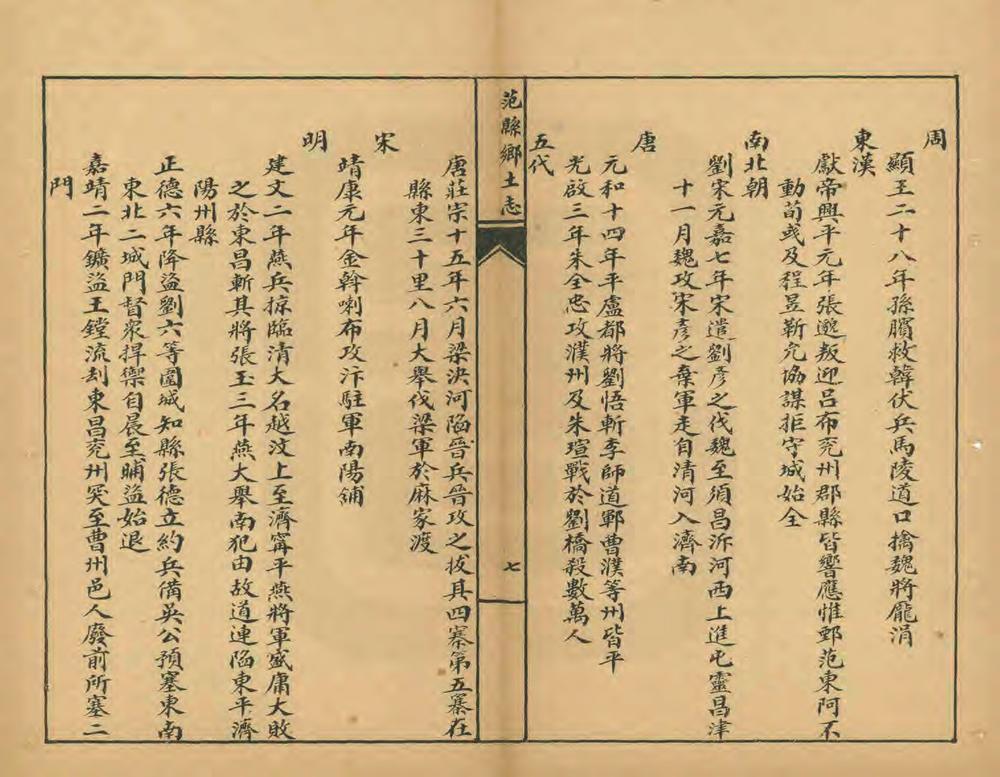 周
顯王二十八年孫臏救韓伏兵馬陵道口擒魏將龐涓
東漢
獻帝興平元年張邈叛迎呂布兖州郡縣皆響應惟鄄范東阿不
動荀彧及程昱靳允協謀拒守城始全
南北朝
劉宋元嘉七年宋遣劉彥之伐魏至須昌泝河西上進屯靈昌津
十一月魏攻宋彥之棄軍走自清河入濟南
唐
元和十四年平盧都將劉悟斬李師道鄆曹濮等州皆平
光啟三年朱全忠攻濮州及朱瑄戰於劉橋殺數萬人
五代
范縣鄉土志
七
唐莊宗十五年六月梁決河陷晉兵晉攻之拔其四寨第五寨在
縣東三十里八月大舉伐梁軍於麻家渡
宋
靖康元年金斡喇布攻汴駐軍南陽鋪
明
建文二年燕兵掠臨清大名越汶上至濟寧平燕將軍盛庸大敗
之於東昌斬其將張玉三年燕大舉南犯由故道連陷東平濟
陽州縣
正德六年降盜劉六等圍城知縣張德立約兵備吳公預塞東南
東北二城門督衆捍禦自晨至晡盜始退
嘉靖二年鑛盜王鏜流刦東昌兖州突至曹州邑人廢前所塞二
門